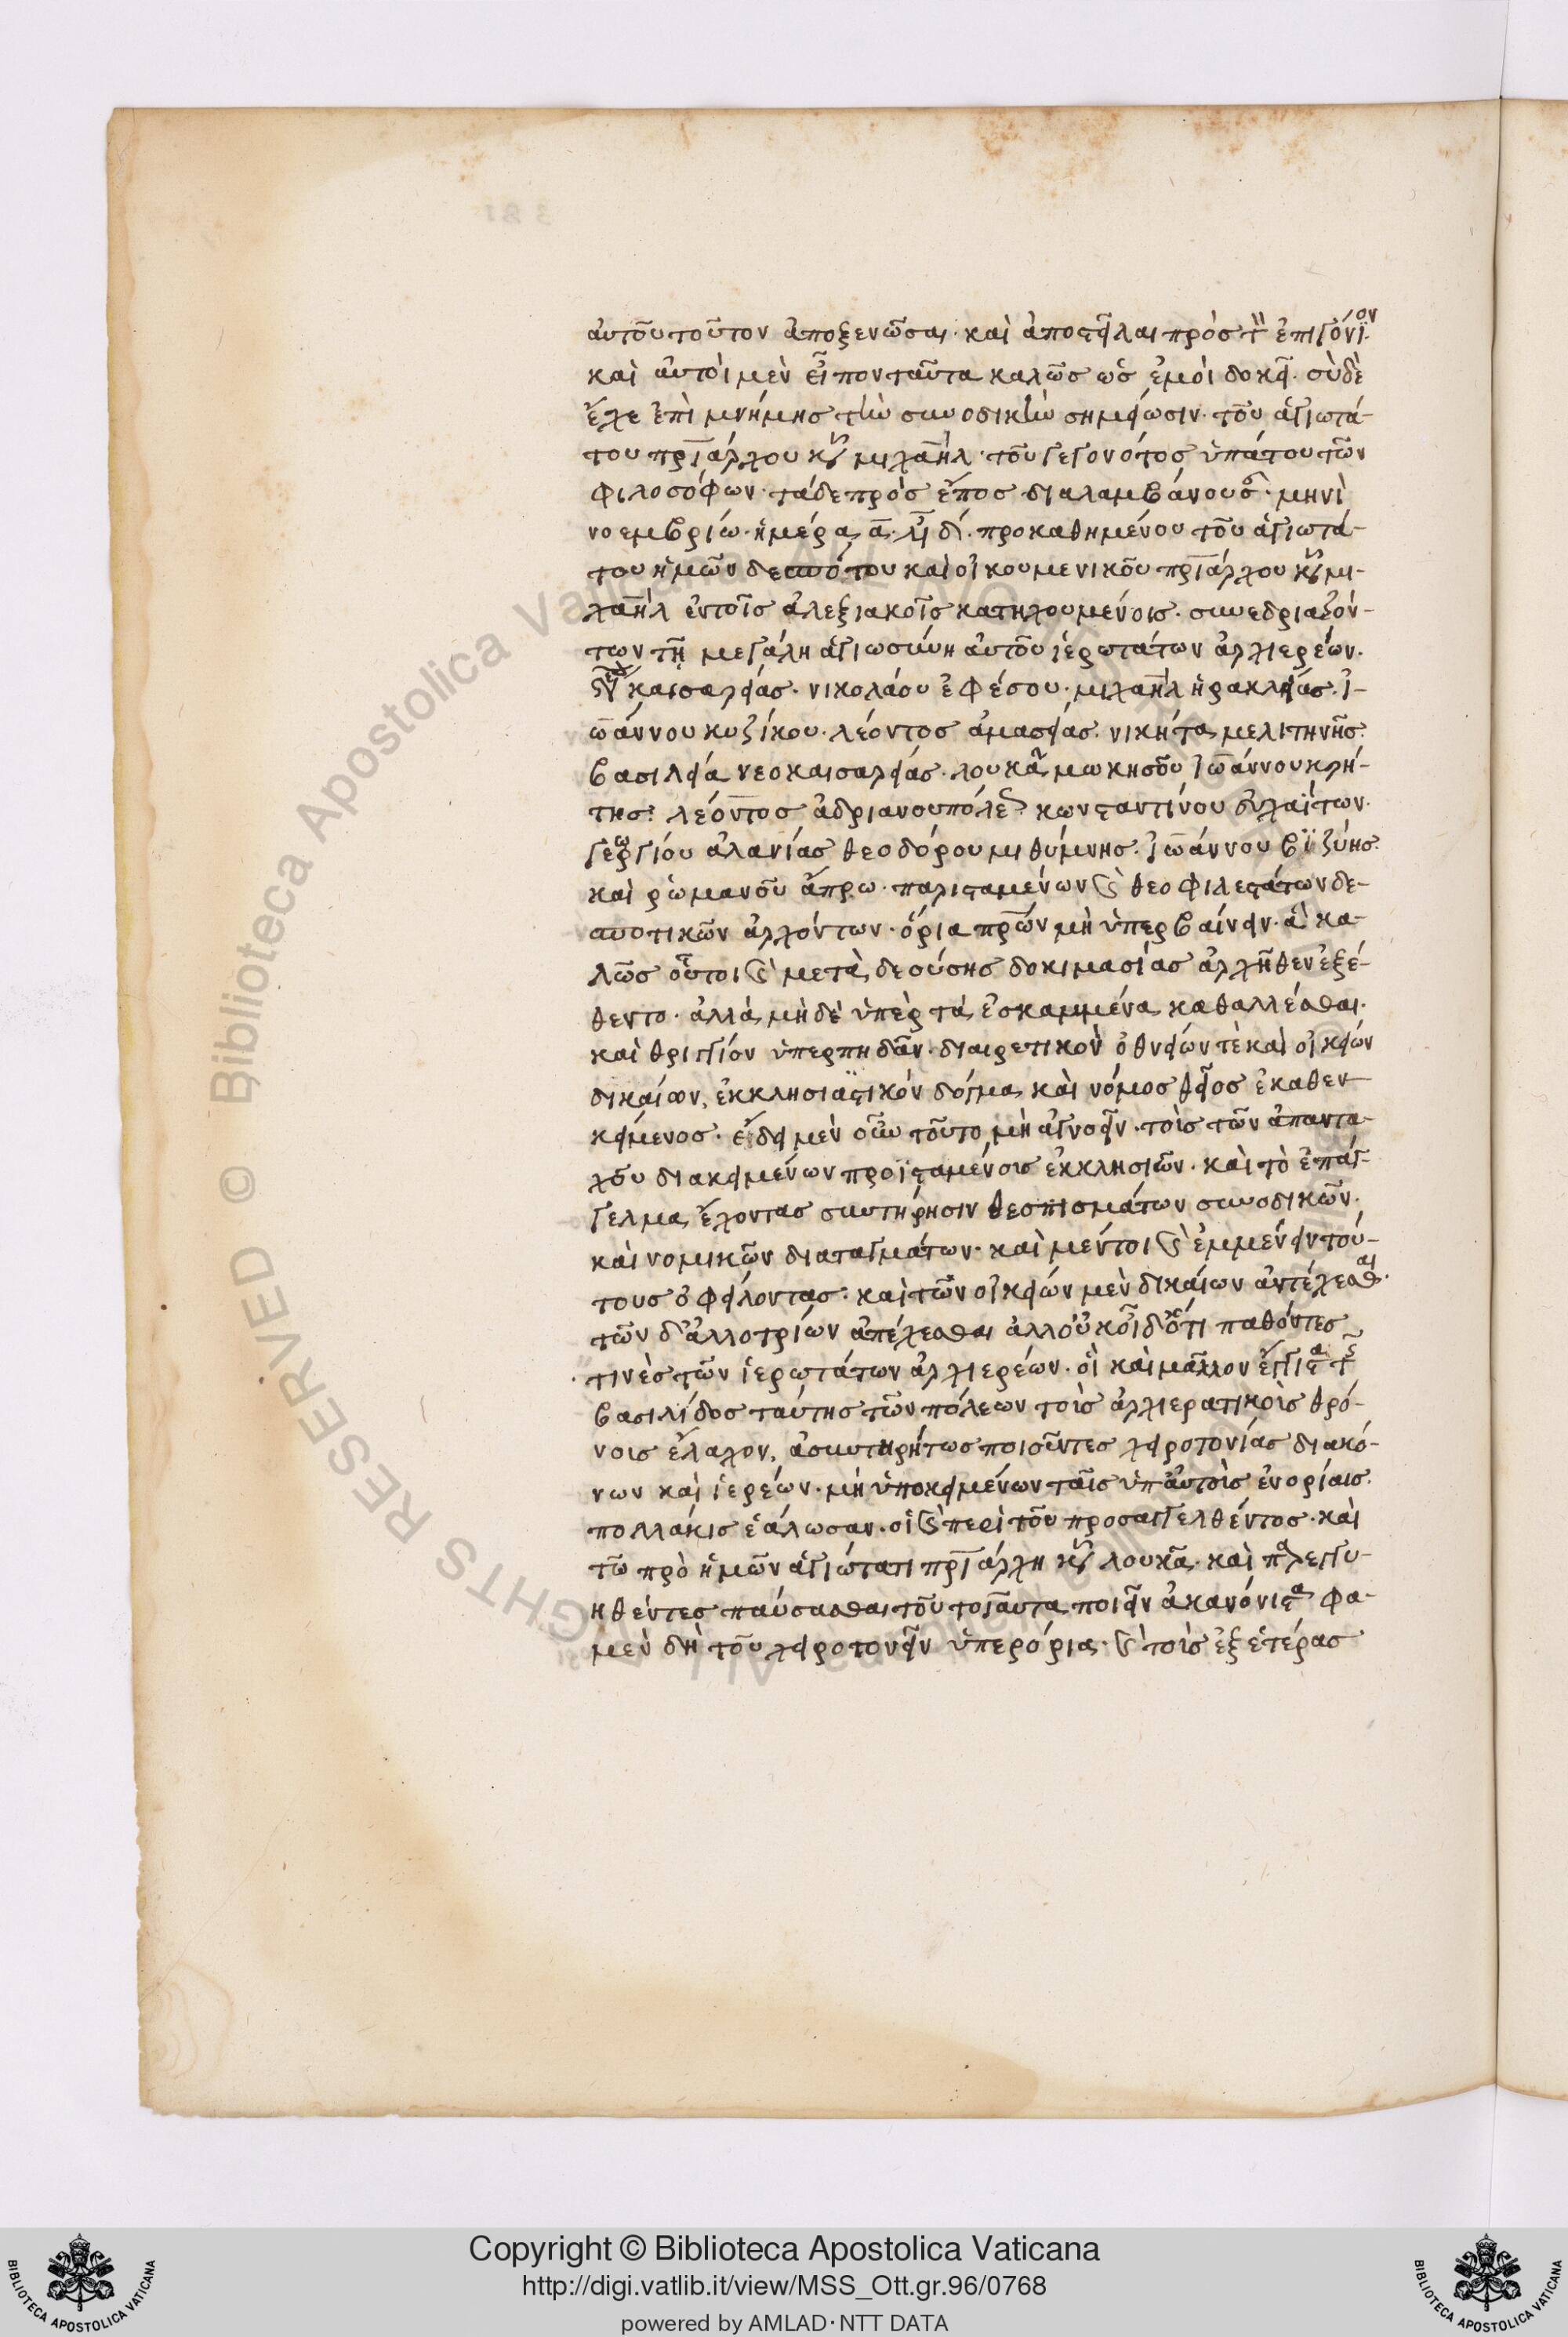 αὐτοῦ τοῦτον ἀποξενῶσαι· καὶ ἀποστεῖλαι πρὸς τὸν ἐπιγόνιον.
καὶ αὐτοὶ μὲν εἶπον ταῦτα καλῶς ὡς ἐμοὶ δοκεῖ. σὺ δὲ
ἔχε ἐπὶ μνήμης τὴν συνοδικὴν σημείωσιν· τοῦ ἁγιωτά-
του πριάρχου κυ μιχαὴλ· τοῦ γεγονότος ὑπάτου τῶν
φιλοσόφων· τάδε πρὸς ἔπος διαλαμβάνουσαν· μηνὶ
νοεμβρίω· ἡμέρα α. ἰν δι. προκαθημένου τοῦ ἁγιωτά-
του ἡμῶν δεσπότου καὶ οἰκουμενικοῦ πριάρχου κυ μι-
χαὴλ ἐν τοῖς ἀλεξιακοῖς κατηχουμένοις. συνεδριαζόν-
των τῇ μεγάλη ἁγιωσύνη αὐτοῦ ἱερωτάτων ἀρχιερέων.
καισαρείας. νικολάου ἐφέσου· μιχαὴλ ἡρακλείας. ἰ-
ωάννου κυζίκου. λέοντος ἀμασείας. νικήτα μελιτηνῆς.
βασιλεία νεοκαισαρείας. λουκᾶ μωκησοῦ ἰωάννου κρή-
της. λέοντος ἀδριανουπόλεως. κωνσταντίνου εὐχαΐτων.
γεωργίου ἀλανίας θεοδόρου μιθύμνης. ἰωάννου βϊζύης.
καὶ ῥωμανοῦ ἄπρω. παρισταμένων καὶ θεοφιλεστάτων δε-
σποτικῶν ἀρχόντων. ὅρια πρων μὴ ὑπερβαίνειν. ἃ κα-
λῶς οὗτοι καὶ μετὰ δεούσης δοκιμασίας ἀρχῆθεν ἐξέ-
θεντο· ἀλλὰ μὴ δὲ ὑπὲρ τὰ ἐσκαμμένα καθαλλέσθαι.
καὶ θριγγίον ὑπερπηδᾶν. διαιρετικὸν ὀθνείων τὲ καὶ οἰκείων
δικαίων, ἐκκλησιαστικὸν δόγμα καὶ νόμος θεῖος ἐκαθεν
κείμενος. ἔδει μὲν οὖν τοῦτο μὴ ἀγνοεῖν. τοῖς τῶν ἁπαντα-
χοῦ διακειμένων προϊσταμένοις ἐκκλησιῶν. καὶ τὸ ἐπάγ-
γελμα ἔχοντας συντήρησιν θεσπισμάτων συνοδικῶν.
καὶ νομικῶν διαταγμάτων. καὶ μέντοι καὶ ἐμμένειν τού-
τους ὀφείλοντας. καὶ τῶν οἰκείων μὲν δικαίων ἀντέχεσθαι.
τῶν δ' ἀλλοτρίων ἀπέχεσθαι ἀλλ' οὐκ οἶδ' ὅτι παθόντες
τινὲς τῶν ἱερωτάτων ἀρχιερέων. οἳ καὶ μᾶλλον ἔγγιστα τῆς
βασιλίδος ταύτης τῶν πόλεων τοῖς ἀρχιερατικοῖς θρό-
νοις ἔλαχον, ἀσυντηρήτως ποιοῦντες χειροτονίας διακό-
νων καὶ ἱερέων. μὴ ὑποκειμένων ταῖς ὑπ' αὐτοῖς ἐνορίαις.
πολλάκις ἑάλωσαν. οἳ καὶ περὶ τοῦ προσαγγελθέντος. καὶ
τῶ πρὸ ἡμῶν ἁγιώτατι πριάρχη κυ λουκᾶ. καὶ παρεγγυ-
ηθέντες παύσασθαι τοῦ τοιαῦτα ποιεῖν ἀκανόνιστα φα-
μὲν δὴ τοῦ χειροτονεῖν ὑπερόρια. καὶ τοῖς ἐξ ἑτέρας
Copyright © Biblioteca Apostolica Vaticana
http://digi.vatlib.it/view/MSS_Ott.gr.96/0768
powered by AMLAD·NTT DATA